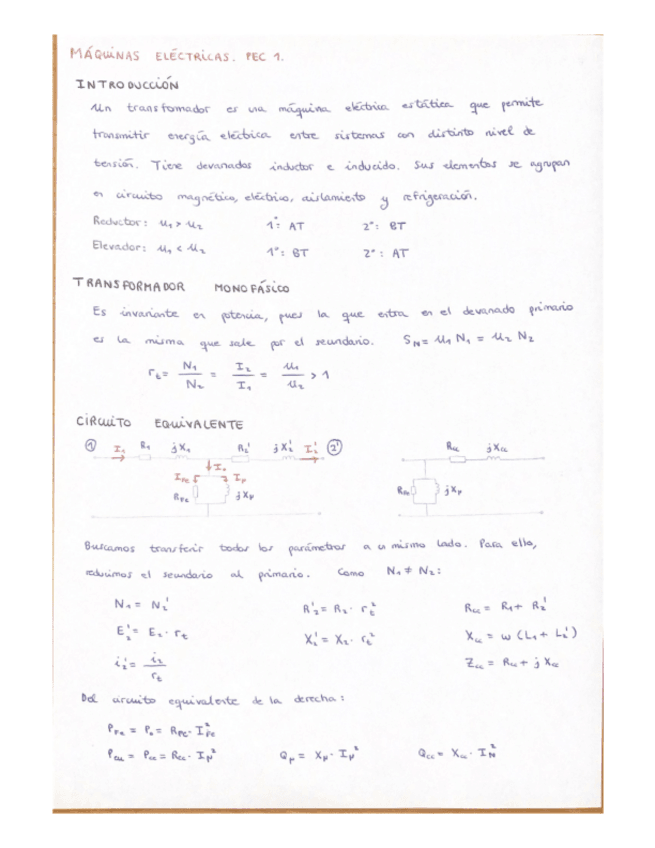 MÁQUINAS ELÉCTRICAS. PEC 1.
INTRODUCCIÓN
Un transfomador es una máquina eléctrica estática que permite
transmitir energía eléctrica entre sistemas con distinto nivel de
tensión. Tiene devanados inductor e inducido. Sus elementos se agrupan
en circuito magnético, eléctrico, aislamiento y refrigeración.
Reductor: u₁ > u₂ 1°: AT 2°: BT
Elevador: u₁ < u₂ 1°: BT 2°: AT
TRANSFORMADOR MONOFÁSICO
Es invariante en potencia, pues la que entra en el devanado primario
es la misma que sale por el secundario. S_N = u₁ N₁ = u₂ N₂
r_t = N₁/N₂ = I₂/I₁ = u₁/u₂ > 1
CIRCUITO EQUIVALENTE
① I₁ R₁ jX₁ R₂' jX₂' I₂' ②' R_cc jX_cc
I₀
I_Fe I_μ
R_Fe jX_μ R_Fe jX_μ
Buscamos transferir todos los parámetros a un mismo lado. Para ello,
reducimos el secundario al primario. Como N₁ ≠ N₂:
N₁ = N₂' R₂' = R₂ · r_t² R_cc = R₁ + R₂'
E₂' = E₂ · r_t X₂' = X₂ · r_t² X_cc = ω (L₁ + L₂')
i₂' = i₂/r_t Z_cc = R_cc + j X_cc
Del circuito equivalente de la derecha:
P_Fe = P₀ = R_Fe · I_Fe²
P_cu = P_cc = R_cc · I_N² Q_μ = X_μ · I_μ² Q_cc = X_cc · I_N²